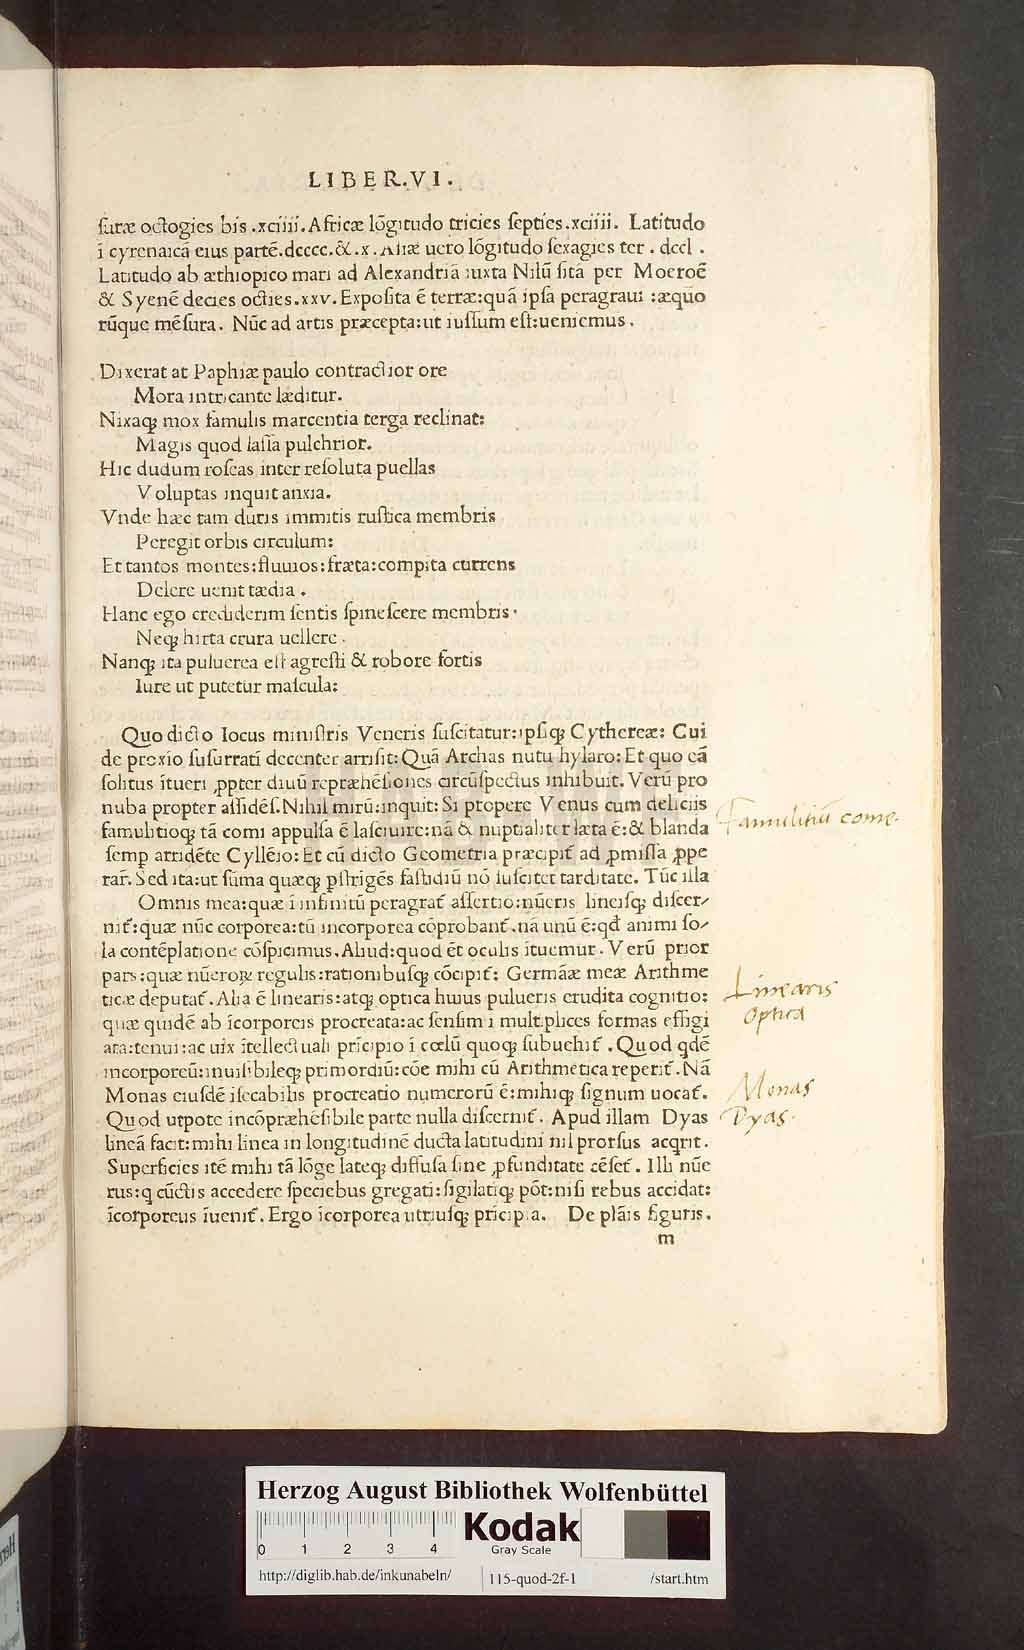 LIBER.VI.
ſuræ octogies bis .xciiii. Africæ lōgitudo tricies ſepties .xciiii. Latitudo
ī cyrenaicā eius partē.dcccc.&.x. Aſiæ uero lōgitudo ſexagies ter . dccl .
Latitudo ab æthiopico mari ad Alexandriā iuxta Nilū ſitā per Moeroē
& Syenē decies octies.xxv. Expoſita ē terræ:quā ipſa peragraui :æquo
rūque mēſura. Nūc ad artis præcepta:ut iuſſum eſt:ueniemus.
Dixerat at Paphiæ paulo contractior ore
Mora intricante læditur.
Nixaqꝫ mox famulis marcentia terga reclinat:
Magis quod laſſa pulchrior.
Hic dudum roſeas inter reſoluta puellas
Voluptas inquit anxia.
Vnde hæc tam duris immitis ruſtica membris
Peregit orbis circulum:
Et tantos montes:fluuios:fræta:compita currens
Delere uenit tædia .
Hanc ego crediderim ſentis ſpineſcere membris·
Neqꝫ hirta crura uellere .
Nanqꝫ ita puluerea eſt agreſti & robore fortis
Iure ut putetur maſcula:
Quo dicto Iocus miniſtris Veneris ſuſcitatur:ipſiqꝫ Cythereæ: Cui
de proxīo ſuſurrati decenter arriſit: Quā Archas nutu hylaro: Et quo eā
ſolitus ītueri ꝓpter diuū repræhēſiones circūſpectus inhibuit. Verū pro
nuba propter aſſidēſ. Nihil mirū:inquit: Si propere Venus cum deliciis
famulitioqꝫ tā comi appulſa ē laſciuire:nā & nuptialiter læta ē:& blanda
ſemp arridēte Cyllēio: Et cū dicto Geometria præcipit᷑ ad ꝓmiſſa ꝓpe
rar̄. Sed ita:ut ſūma quæqꝫ pſtrigēs faſtidiū nō ſuſcitet tarditate. Tūc illa
Omnis mea:quæ ī infinitū peragrat᷑ aſſertio:nūeris lineiſqꝫ diſcer-
nit᷑:quæ nūc corporea:tū incorporea cōprobant᷑.nā unū ē:qđ animi ſo-
la contēplatione cōſpicimus. Aliud:quod ēt oculis ītuemur. Verū prior
pars:quæ nūeroꝝ regulis:rationibuſqꝫ cōcipit᷑: Germāæ meæ Arithme
ticæ deputat᷑. Alia ē linearis:atqꝫ optica huius pulueris erudita cognitio:
quæ quidē ab īcorporeis procreata:ac ſenſim ī multiplices formas effigi
ata:tenui:ac uix ītellectuali prīcipio ī cœlū quoqꝫ ſubuehit᷑. Quod qdē
incorporeū:inuiſibileqꝫ primordiū:cōe mihi cū Arithmetica reperit᷑. Nā
Monas eiuſdē iſecabilis procreatio numerorū ē:mihiqꝫ ſignum uocat᷑.
Quod utpote incōpræhēſibile parte nulla diſcernit᷑. Apud illam Dyas
lineā facit:mihi linea in longitudinē ducta latitudini nil prorſus acqrit.
Superficies itē mihi tā lōge lateqꝫ diffuſa ſine ꝓfunditate cēſet᷑. Illi nūe
rus:q cūctis accedere ſpeciebus gregati:ſigilatiqꝫ pōt:niſi rebus accidat:
īcorporeus īuenit᷑. Ergo īcorporea utriuſqꝫ prīcipia. De plāis figuris.
m
Famulitiū come.
Linearis
Optica
Monas
Dyas.
HAB WF
Herzog August Bibliothek Wolfenbüttel
0 1 2 3 4 Kodak
Gray Scale
http://diglib.hab.de/inkunabeln/ 115-quod-2f-1 /start.htm